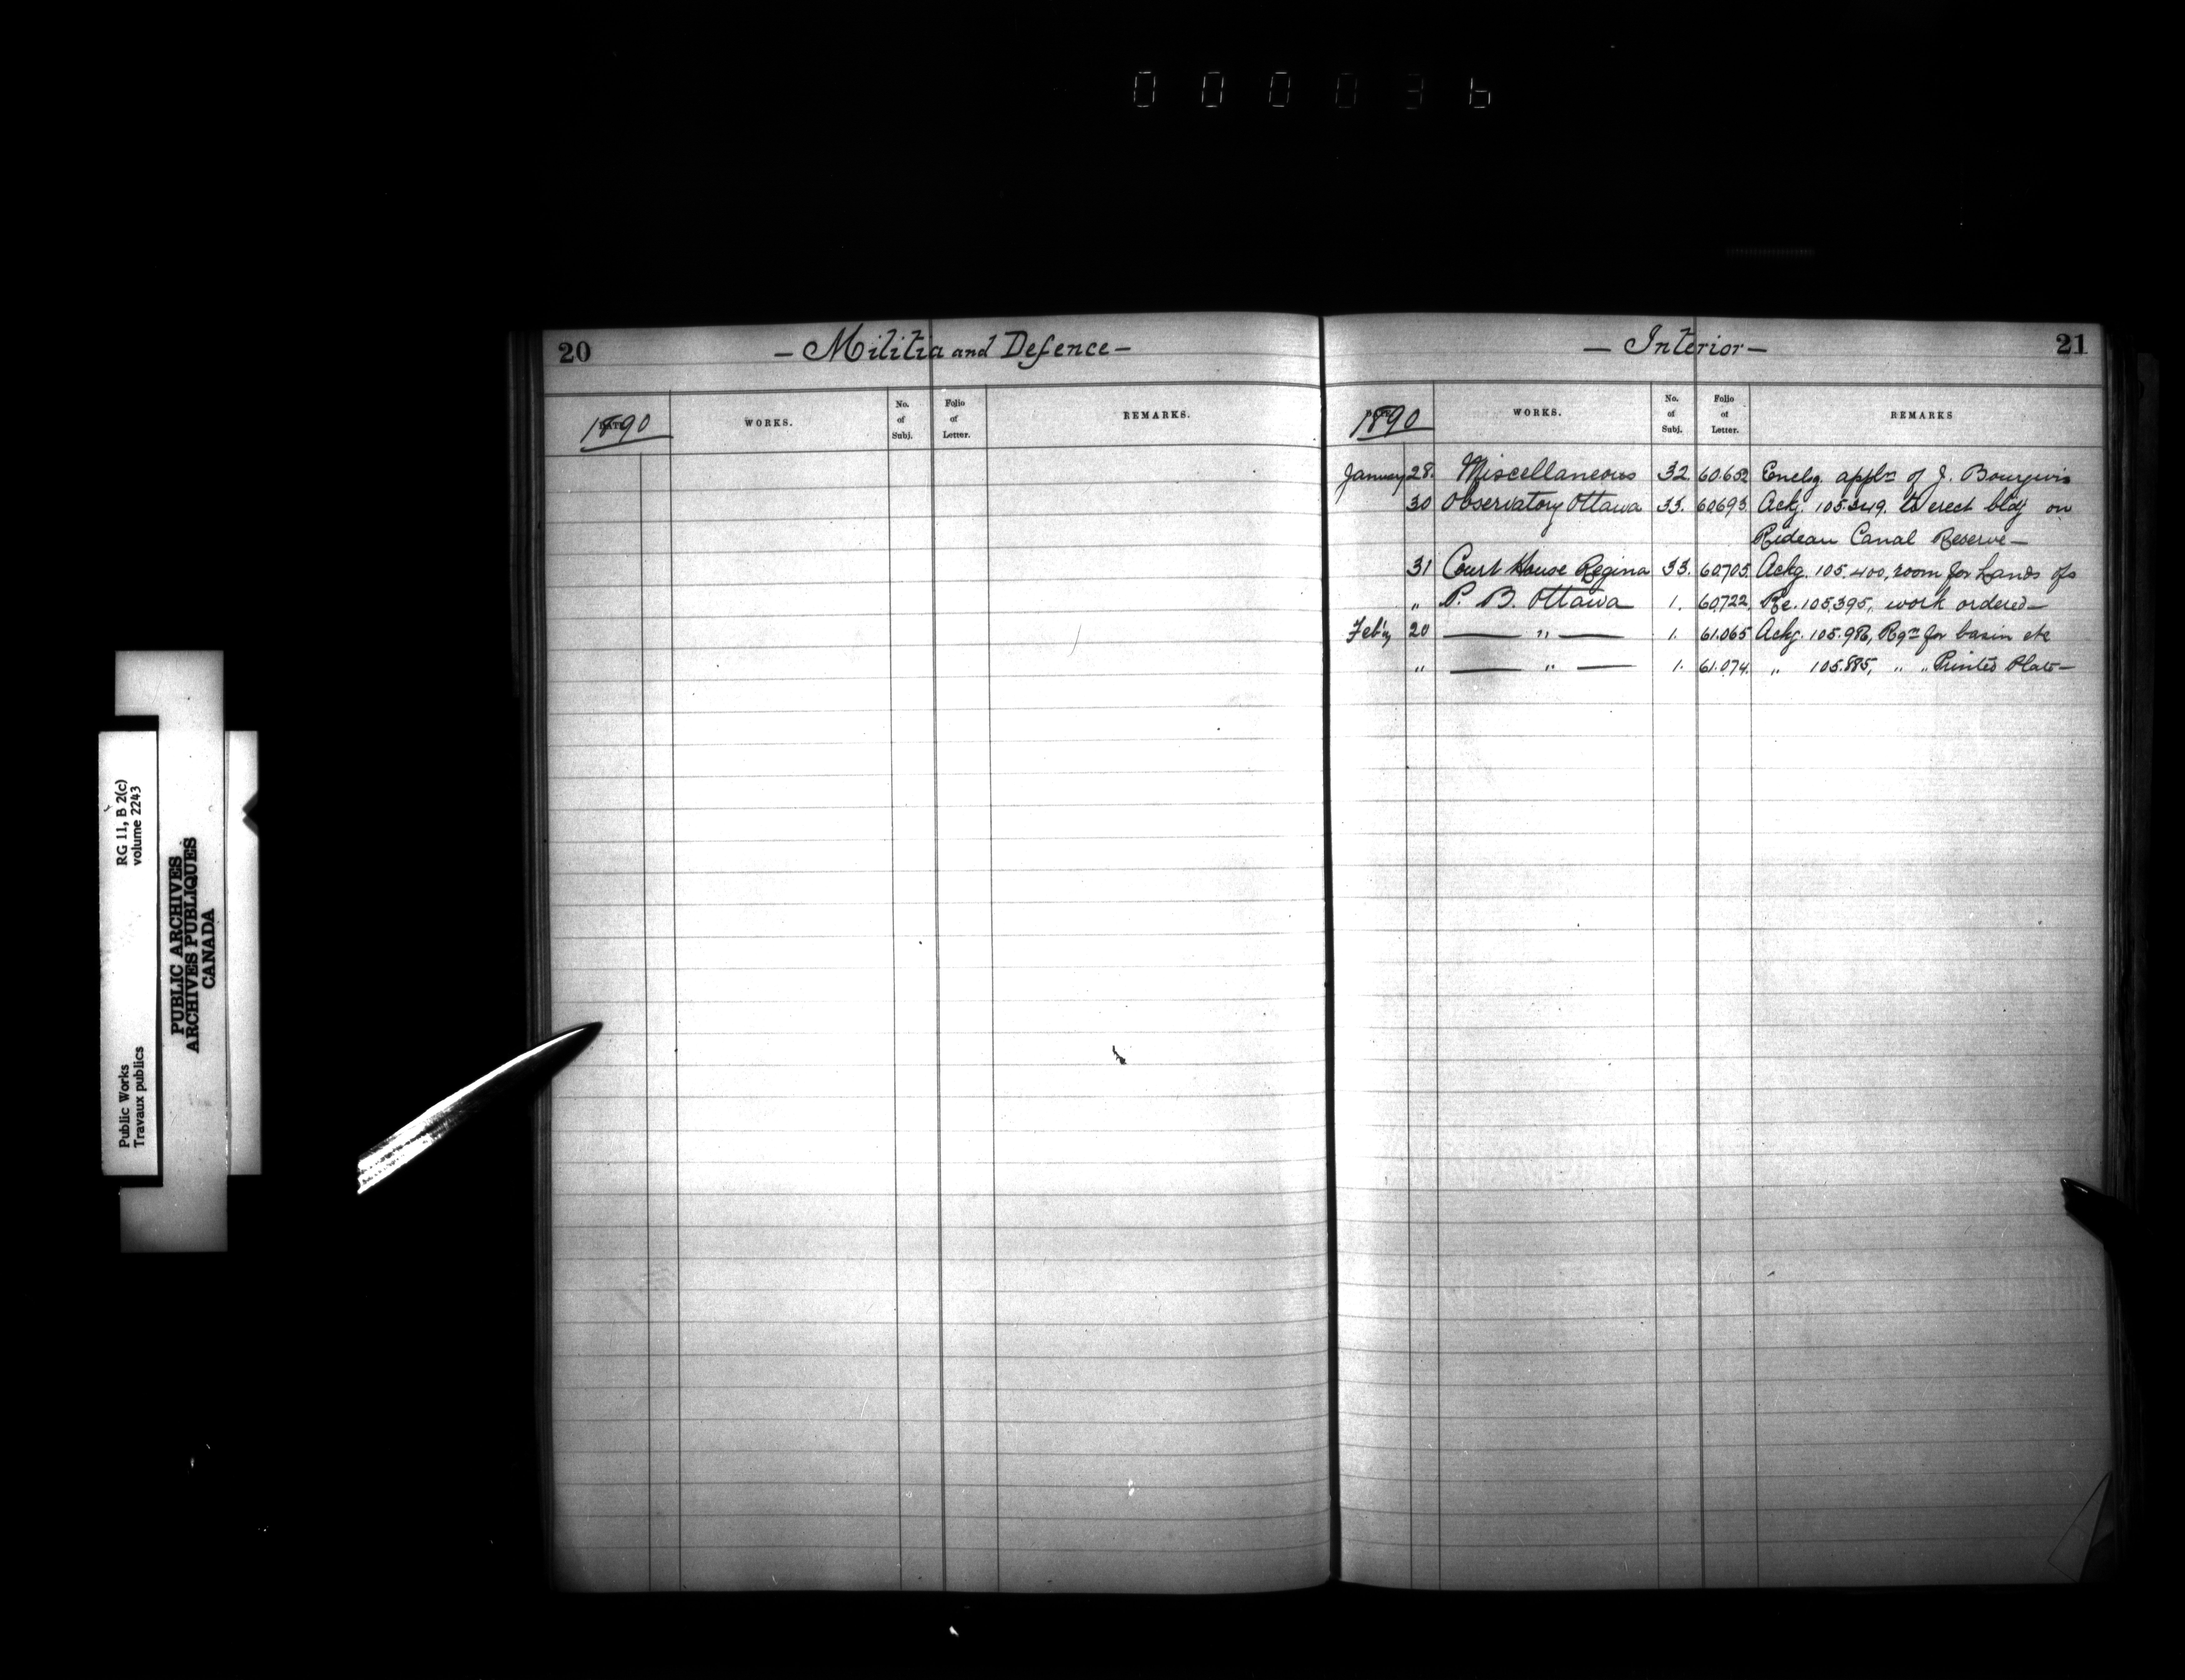 000036
20
— Militia and Defence —
1890
DATE
WORKS.
No. of Subj.
Folio of Letter.
REMARKS.
— Interior —
21
1890
WORKS.
No. of Subj.
Folio of Letter.
REMARKS
January 28. Miscellaneous 32. 60.652 Enclg. appln of J.
30 Observatory Ottawa 33. 60693. Ackg. 105.349. to erect bldg on
Rideau Canal Reserve —
31 Court House Regina 33. 60705. Ackg. 105.400, room for Lands ofs
" P. B. Ottawa 1. 60722. Re. 105395, work ordered —
Feb'y 20 — " — 1. 61.065 Ackg. 105.986, Rqn for basin etc
" — " — 1. 61.074. " 105.885, " " Printed
RG 11, B 2(c)
volume 2243
Public Works
Travaux publics
PUBLIC ARCHIVES
ARCHIVES PUBLIQUES
CANADA